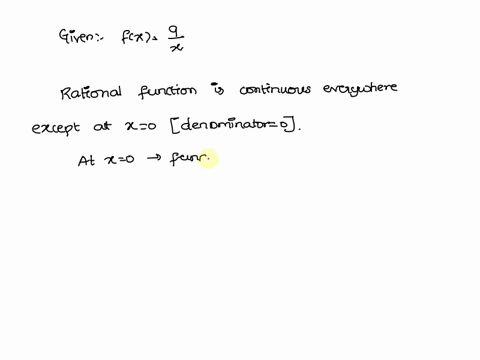 Given:- f(x) = 9/x
Rational function is continuous everywhere
except at x=0 [denominator=0].
At x=0 → func